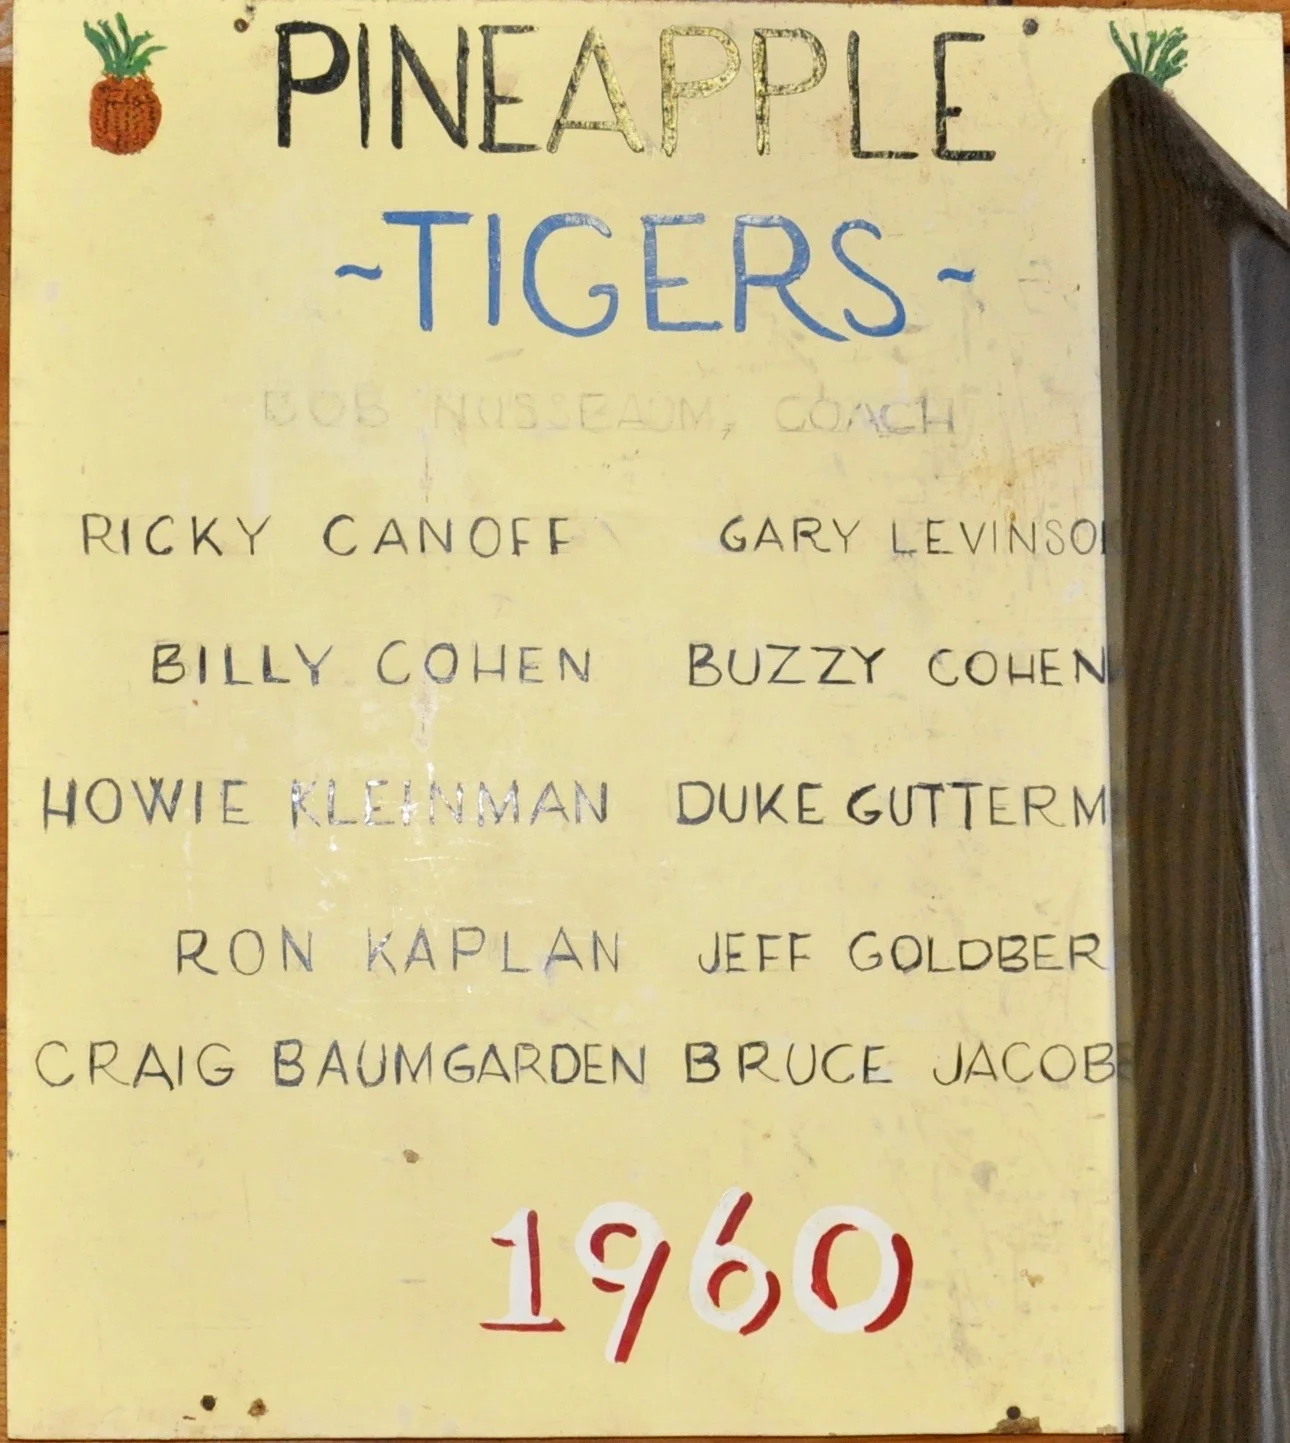 PINEAPPLE
~TIGERS~
BOB NUSSBAUM, COACH
RICKY CANOFF GARY LEVINSO
BILLY COHEN BUZZY COHEN
HOWIE KLEINMAN DUKE GUTTERM
RON KAPLAN JEFF GOLDBER
CRAIG BAUMGARDEN BRUCE JACOBS
1960